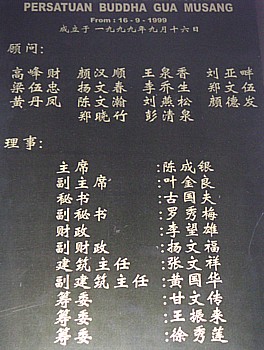 PERSATUAN BUDDHA GUA MUSANG
From : 16 - 9 - 1999
成立于一九九九年九月十六日
顾问:
高峰财 颜汉顺 王泉晋 刘亚畔
梁伍忠 杨文春 李乔生 郑文伍
黄丹凤 陈文瀚 刘燕松 颜德发
郑晓竹 彭清泉
理事:
主席 :陈成银
副主席 :叶金良
秘书 :古国夫
副秘书 :罗秀梅
财政 :李望雄
副财政 :扬文福
建筑主任 :张文祥
副建筑主任 :黄国华
筹委 :甘文传
筹委 :王振来
筹委 :徐秀莲